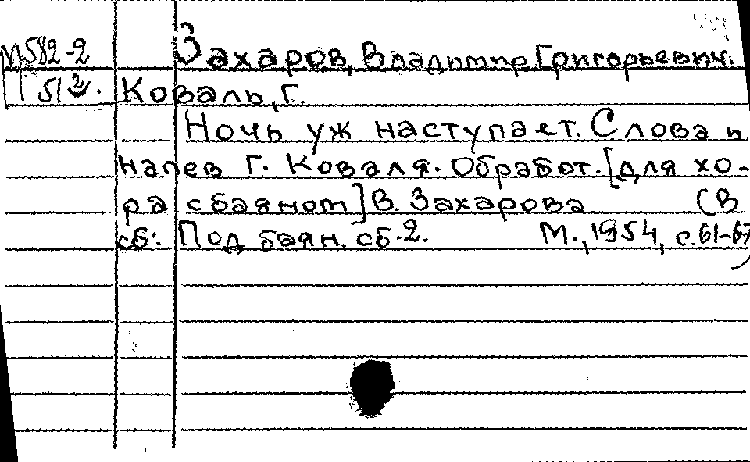 М582-2 Захаров, Владимир Григорьевич.
512. Коваль, Г.
Ночь уж наступает. Слова и
напев Г. Коваля. Обработ. [для хо-
ра с баяном] В. Захарова (В
сб: Под баян. сб. 2. М., 1954, с. 61-67
)